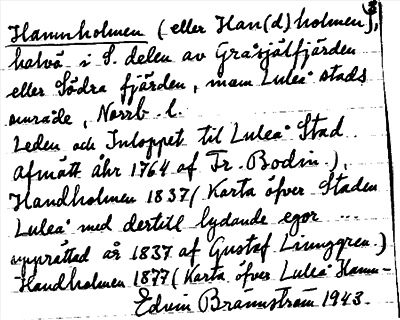 Hamnholmen (eller Han(d)holmen),
halvö i S. delen av Gråsjälfjärden
eller Södra fjärden, inom Luleå stads
område, Norrb. l.
Leden och Inloppet til Luleå Stad ..
afmätt åhr 1764 af Fr. Bodin.),
Handholmen 1837 (Karta öfver Staden
Luleå med dertill lydande egor ...
upprättad år 1837 af Gustaf Ljunggren.)
Handholmen 1877 (Karta öfver Luleå Hamn-
Edvin Brännström 1943.